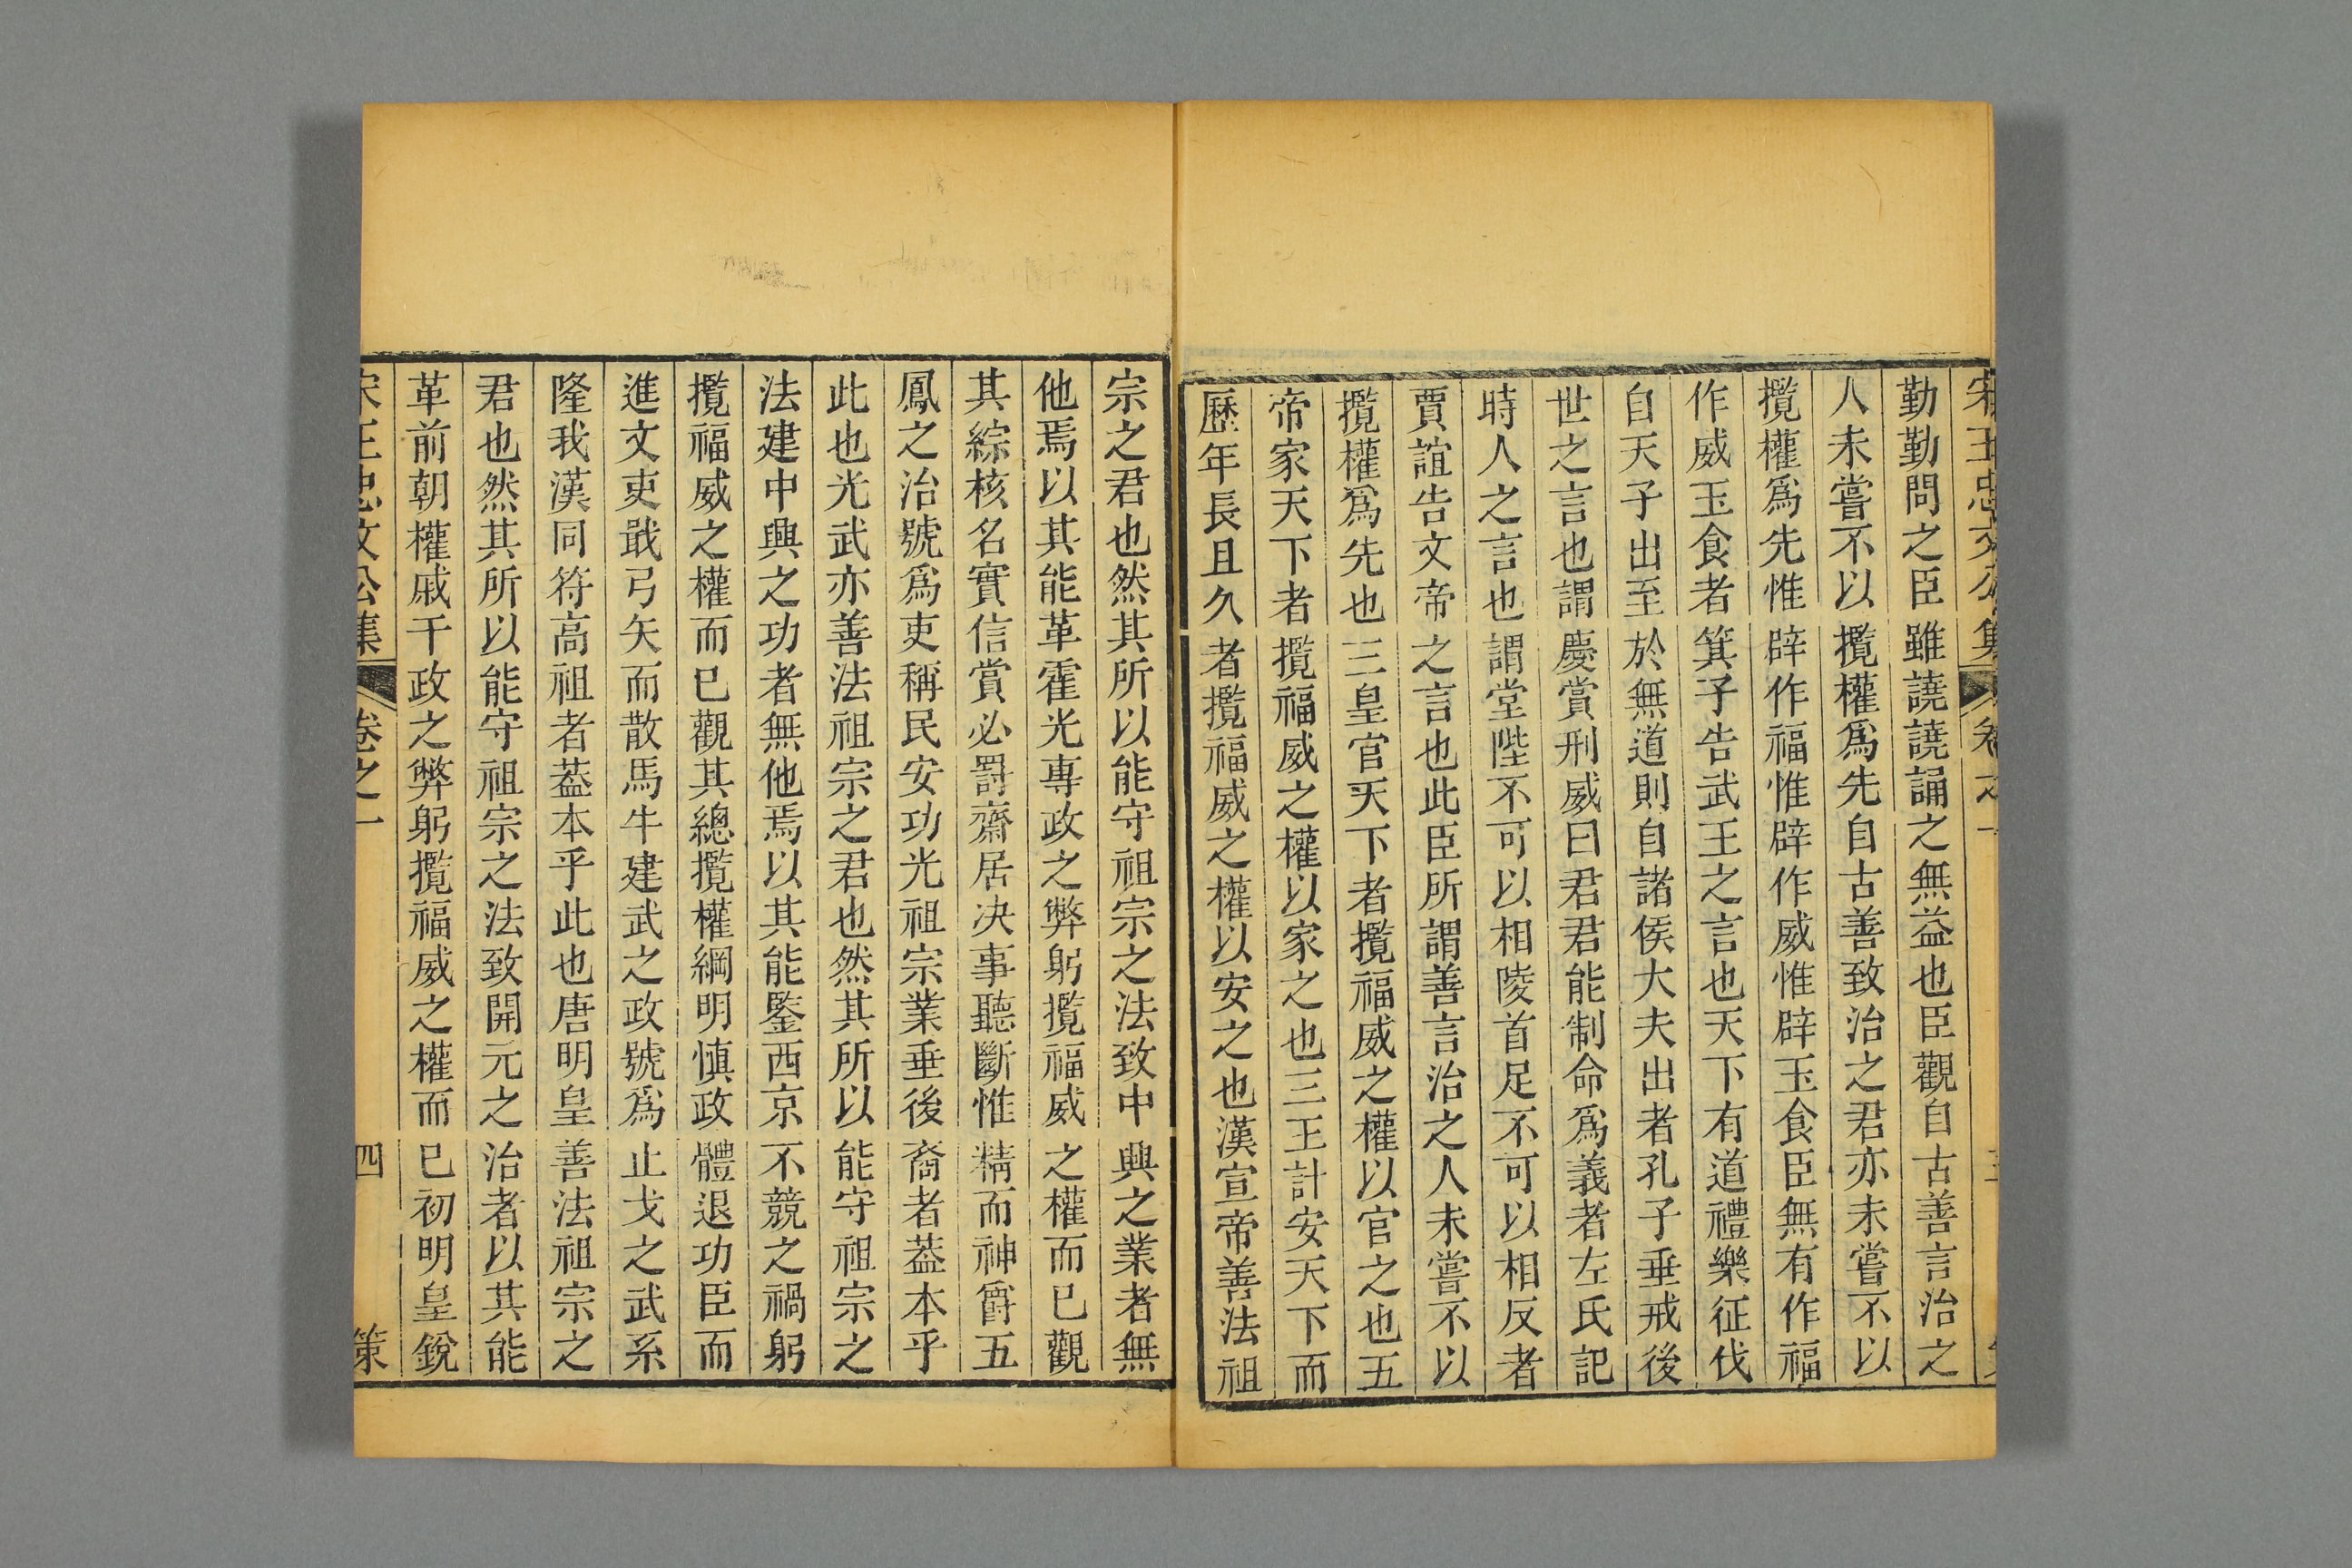 宋王忠文公集 卷之一
勤勤問之臣雖譊譊誦之無益也臣觀自古善言治之
人未嘗不以攬權爲先自古善致治之君亦未嘗不以
攬權爲先惟辟作福惟辟作威惟辟玉食臣無有作福
作威玉食者箕子告武王之言也天下有道禮樂征伐
自天子出至於無道則自諸侯大夫出者孔子垂戒後
世之言也謂慶賞刑威曰君君能制命爲義者左氏記
時人之言也謂堂陛不可以相陵首足不可以相反者
賈誼告文帝之言也此臣所謂善言治之人未嘗不以
攬權爲先也三皇官天下者攬福威之權以官之也五
帝家天下者攬福威之權以家之也三王計安天下而
歷年長且久者攬福威之權以安之也漢宣帝善法祖
宗之君也然其所以能守祖宗之法致中興之業者無
他焉以其能革霍光專政之弊躬攬福威之權而已觀
其綜核名實信賞必罰齋居决事聽斷惟精而神爵五
鳳之治號爲吏稱民安功光祖宗業垂後裔者葢本乎
此也光武亦善法祖宗之君也然其所以能守祖宗之
法建中興之功者無他焉以其能鑒西京不競之禍躬
攬福威之權而已觀其總攬權綱明慎政體退功臣而
進文吏戢弓矢而散馬牛建武之政號爲止戈之武系
隆我漢同符高祖者葢本乎此也唐明皇善法祖宗之
君也然其所以能守祖宗之法致開元之治者以其能
革前朝權戚干政之弊躬攬福威之權而已初明皇銳
宋王忠文公集 卷之一 四 策